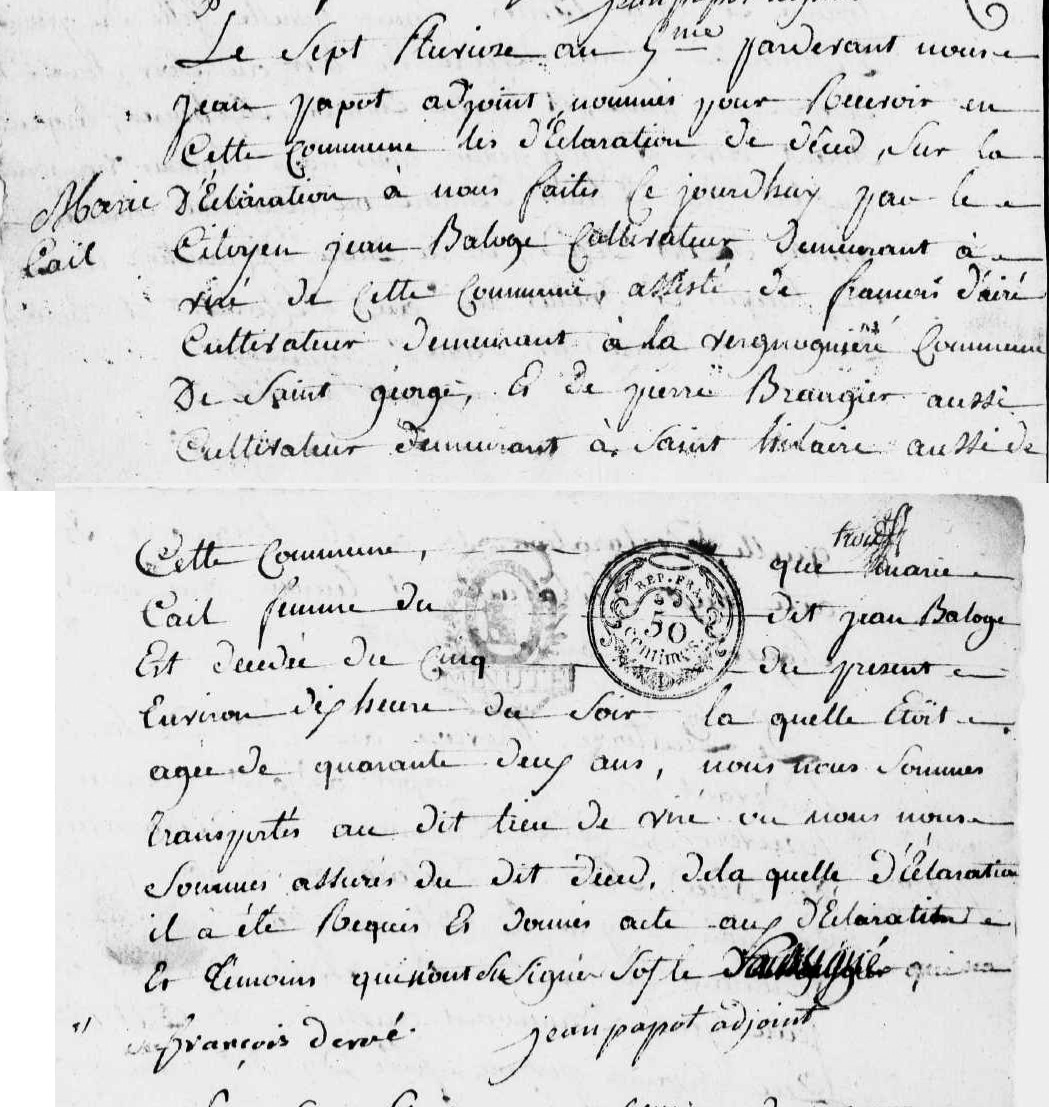 Le Sept Pluviose an 5me pardevant nous
jean papot adjoint, nommés pour Recevoir en
Cette Commune les d'Eclaration de déced, Sur la
D'Eclaration à nous faites Ce jourdhuy par le
Marie
Cail
Citoyen jean Baloge Cultivateur Demeurant à
viré de Cette Commune, assisté de francois d'airé
Cultivateur demeurant à la vergnogniere Commune
De Saint george, Et de pierre Braugier aussi
Cultivateur demeurant à Saint hilaire aussi de
Cette Commune, que marie
Cail femme du dit jean Baloge
REP. FRA.
50
centimes
Est decedée du Cinq du present
Environ dix heure du Soir la quelle Etoit
agée de quarante deux ans, nous nous Sommes
transportés au dit lieu de viré ou nous nous
Sommes assurés du dit déced, de la quelle d'Eclaration
il a été Requis Et donnés acte aux d'Eclaration
Et temoins qui n'ont Su Signer le
françois deroé jean papot adjoint